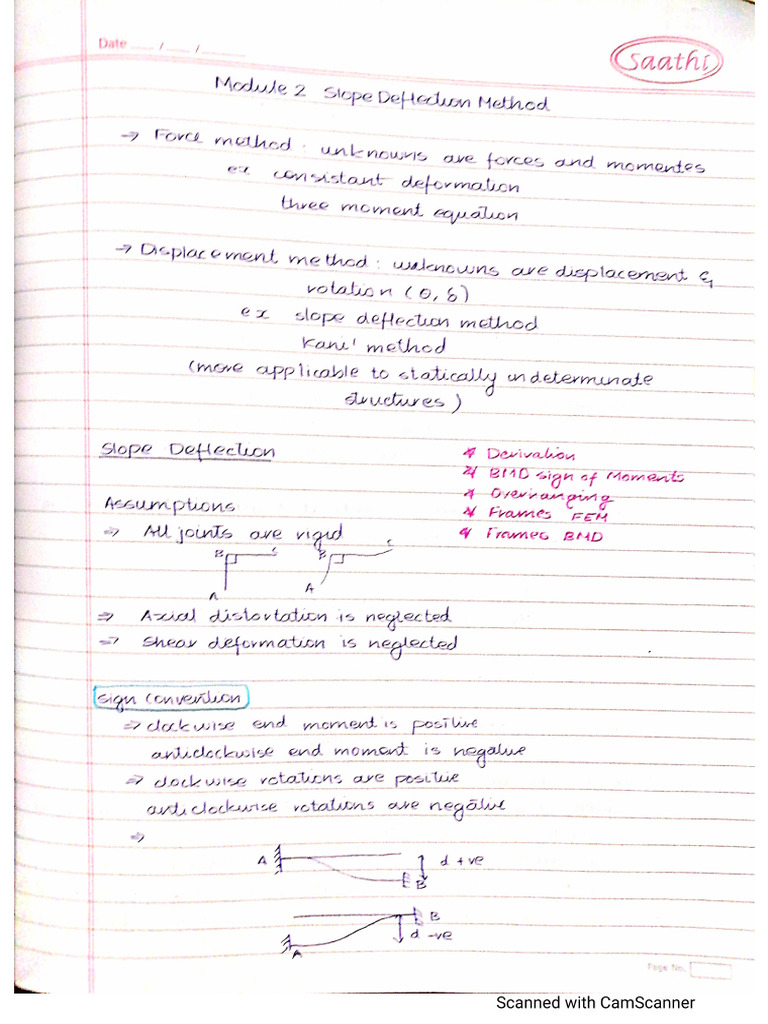 Date ___ / ___ / ______
Saathi
Module 2 Slope Deflection Method
→ Force method : unknowns are forces and momentes
ex consistant deformation
three moment equation
→ Displacement method : unknowns are displacement &
rotation (θ, δ)
ex slope deflection method
Kani' method
(more applicable to statically indeterminate
structures)
Slope Deflection
* Derivation
* BMD sign of Moments
* Overhanging
* Frames FEM
* Frames BMD
Assumptions
⇒ All joints are rigid
B C B C
A A
⇒ Axial distortation is neglected
⇒ Shear deformation is neglected
Sign Convention
⇒ clockwise end moment is positive
anticlockwise end moment is negative
⇒ clockwise rotations are positive
anticlockwise rotations are negative
⇒
A d +ve
B
B
d -ve
A
Page No.
Scanned with CamScanner